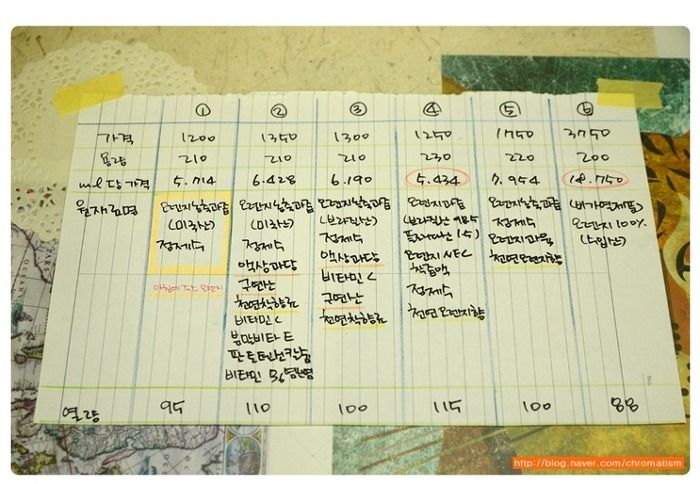 ① ② ③ ④ ⑤ ⑥
가격 1200 1350 1300 1250 1750 3750
용량 210 210 210 230 220 200
ml당가격 5.714 6.428 6.190 5.434 7.954 18.750
원재료명 오렌지농축과즙 오렌지농축과즙 오렌지농축과즙 오렌지과즙 오렌지농축과즙 (비가열제품)
(미국산) (미국산) (브라질산) (브라질산 985 정제수 오렌지 100%
정제수 정제수 정제수 플로리다산 15) 오렌지과육 (수입산)
액상과당 액상과당 오렌지 NFC 천연오렌지향
아침에 주스 오렌지 구연산 비타민C 착즙액
천연착향료 구연산 정제수
비타민C 천연착향료 천연오렌지향
비타민E
비타민
열량 95 110 100 115 100 88
http://blog.naver.com/chromatism